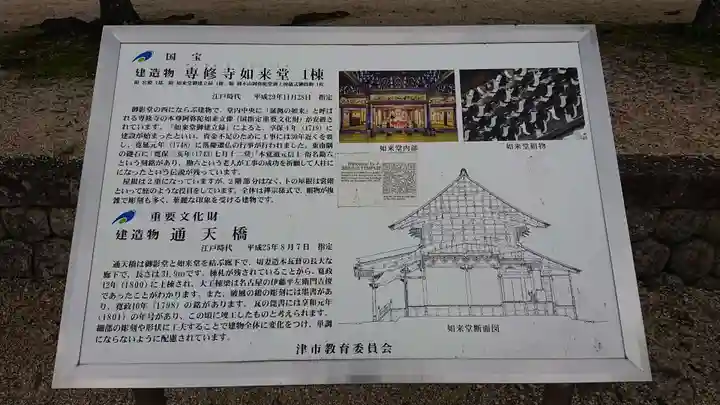 国宝
建造物 専修寺如来堂 1棟
江戸時代 平成29年11月28日 指定
御影堂の西にならぶ建物で、堂内中央に「証拠の如来」と呼ば
れる専修寺の本尊阿弥陀如来立像(国指定重要文化財)が安置さ
れています。「如来堂御建立録」によると、享保4年(1719)に
建設が始まったといい、資金不足のために工事には30年近くを要
し、寛延元年(1748)に落慶遷仏の行事が行われました。東南隅の
礎石に「寛保三亥年(1743)七月十二
という刻銘があり、勘六という老人が工事の成功を祈願して人柱に
になったという伝説が残っています。
屋根は2重になっていますが、2階部分はなく、下の屋根は裳階
といって庇のような役目をしています。全体は禅宗様式で、組物が複
雑で彫刻も多く、華麗な印象を受ける建物です。
重要文化財
建造物 通天橋
江戸時代 平成25年8月7日 指定
通天橋は御影堂と如来堂を結ぶ廊下で、切妻造本瓦葺の長大な
廊下で、長さは31.9mです。棟札が残されていることから、寛政
12年(1800)に上棟され、大工棟梁は名古屋の伊藤平左衛門吉俊
であったことがわかります。また、破風の鏡の彫刻には墨書があ
り、寛政10年(1798)の銘があります。瓦の篦書には享和元年
(1801)の年号があり、この頃に竣工したものと考えられます。
細部の彫刻や形状に工夫することで建物全体に変化をつけ、単調
にならないように配慮されています。
如来堂内部
如来堂組物
如来堂断面図
津市教育委員会